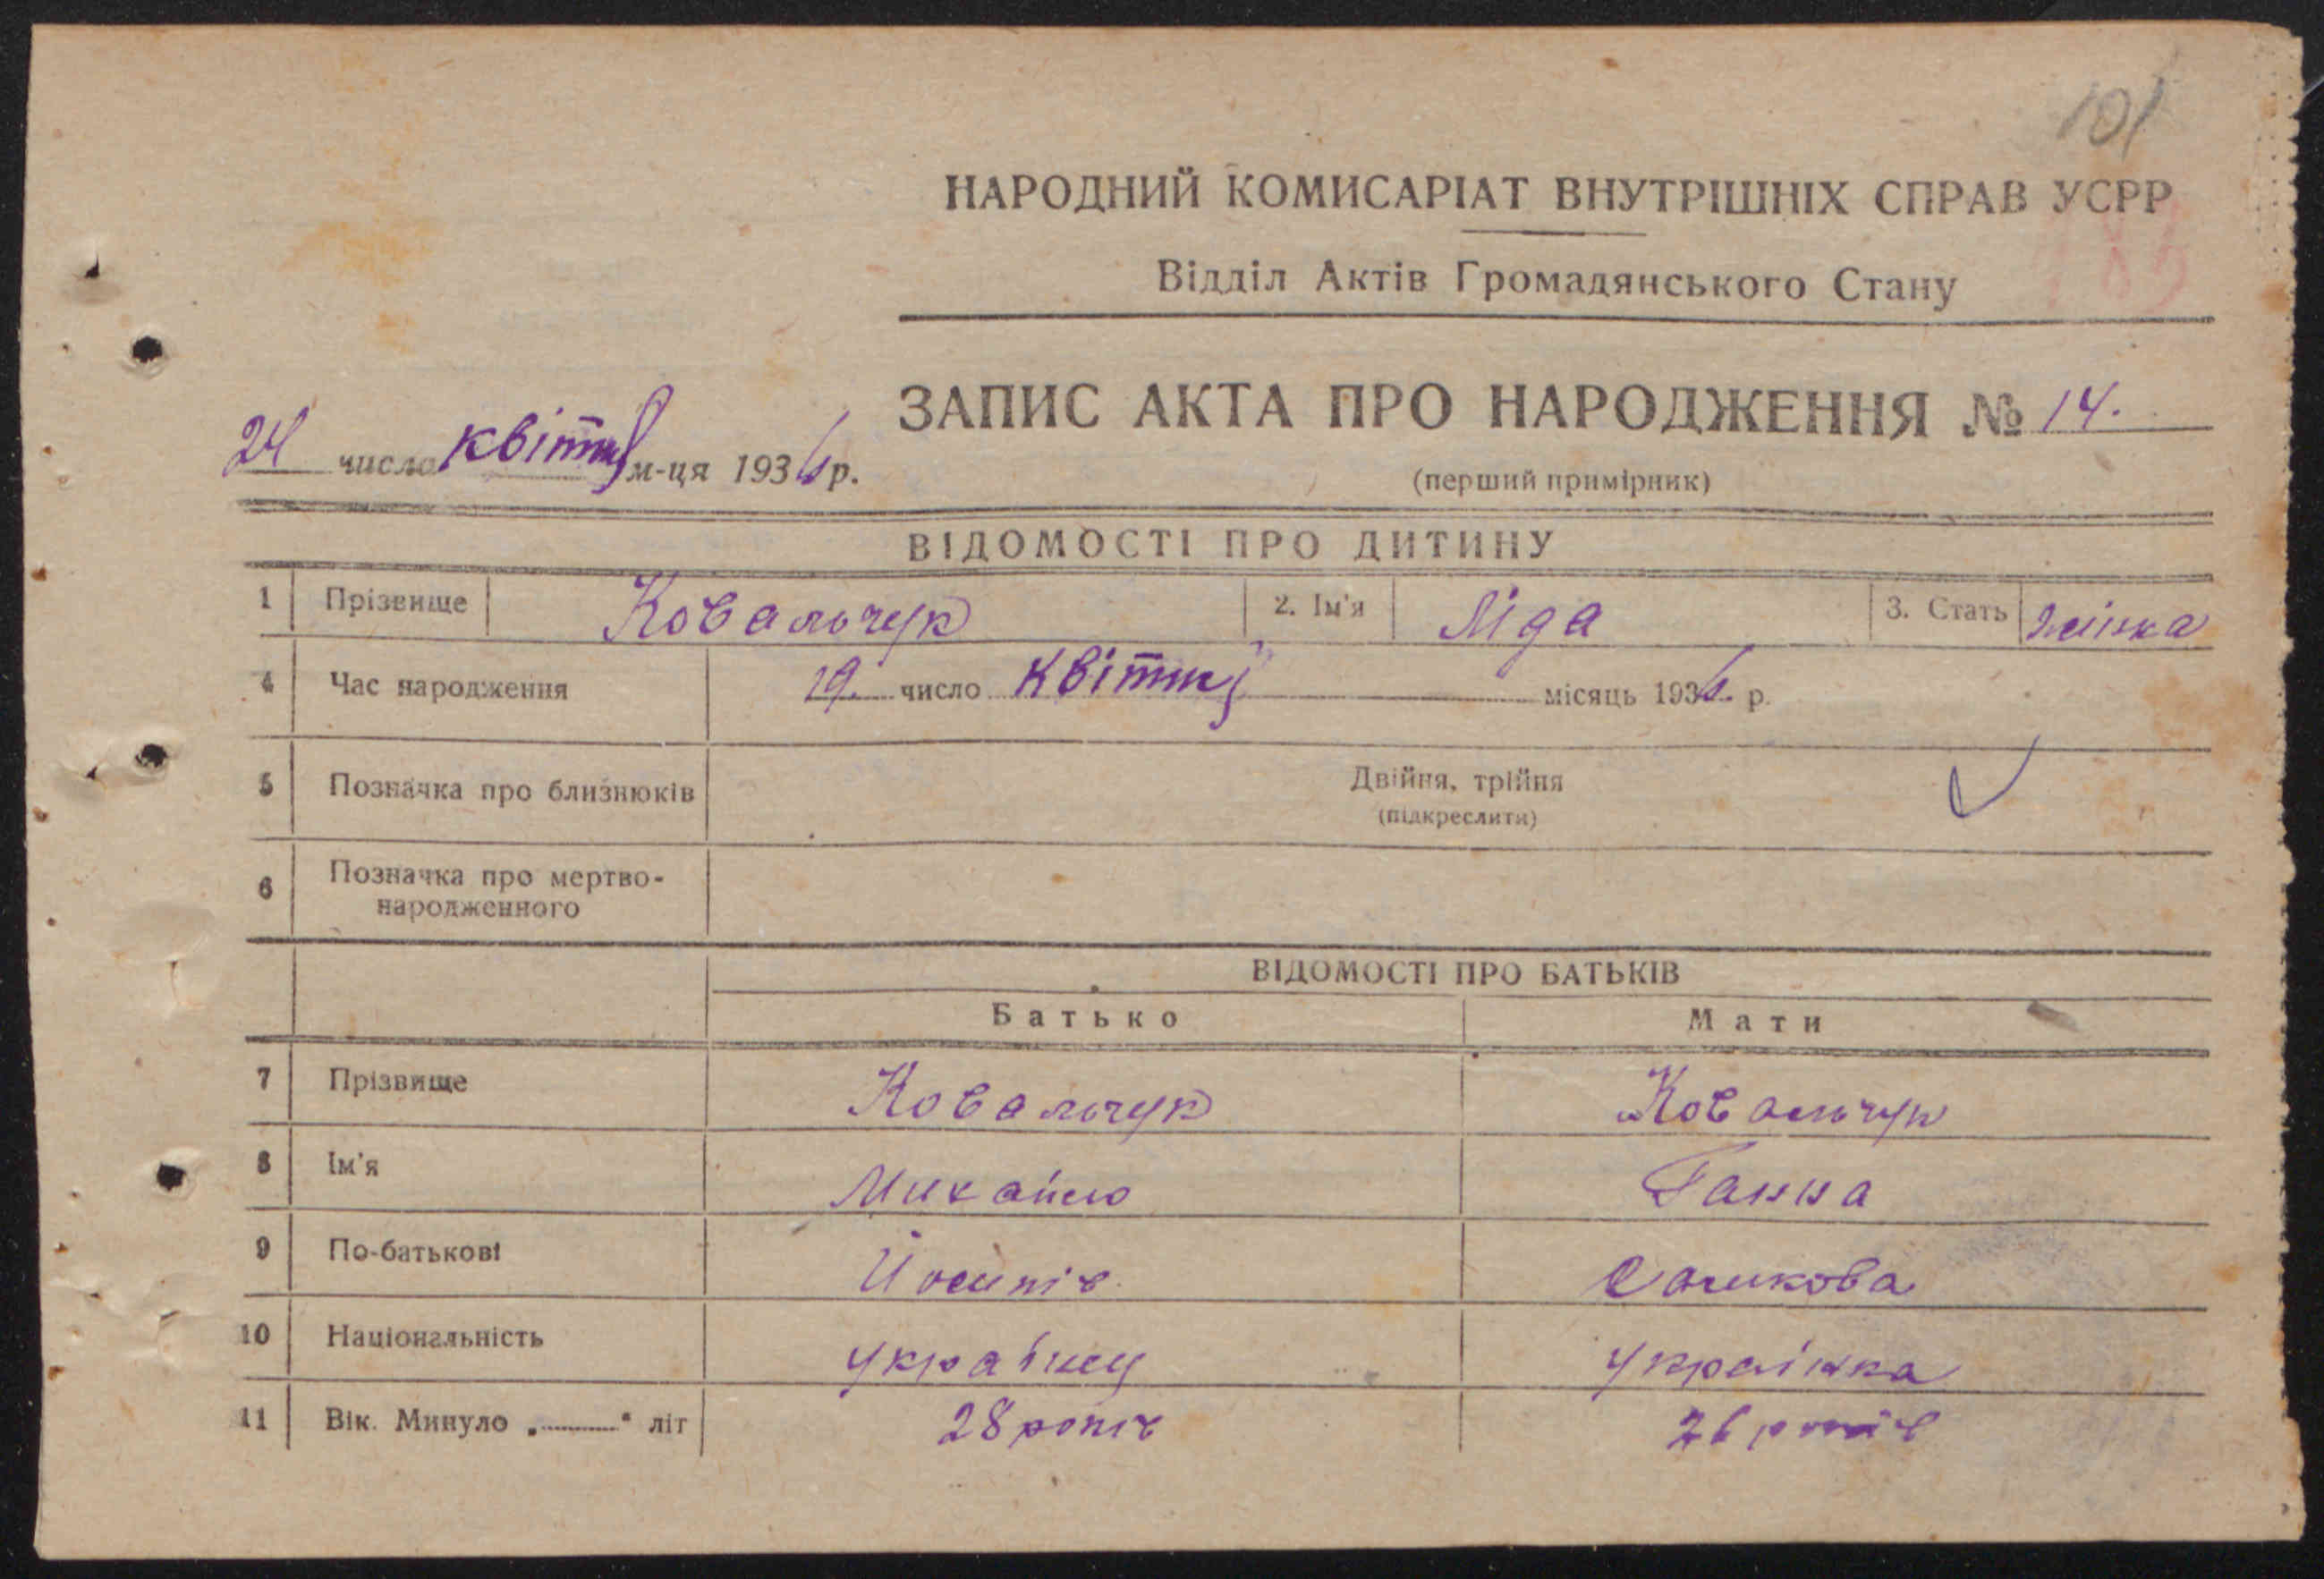 101
НАРОДНИЙ КОМИСАРІАТ ВНУТРІШНІХ СПРАВ УСРР
Відділ Актів Громадянського Стану
ЗАПИС АКТА ПРО НАРОДЖЕННЯ № 14.
24 число квітня м-ця 1936 р.
(перший примірник)
ВІДОМОСТІ ПРО ДИТИНУ
1 Прізвище Ковальчук 2. Ім'я Ліда 3. Стать жінка
4 Час народження 19. число квітня місяць 1936. р.
5 Позначка про близнюків Двійня, трійня
(підкреслити)
6 Позначка про мертво-
народженного
ВІДОМОСТІ ПРО БАТЬКІВ
Батько Мати
7 Прізвище Ковальчук Ковальчук
8 Ім'я Михайло Ганна
9 По-батькові Йосипів
10 Національність українец українка
11 Вік. Минуло „......“ літ 28 років 26 років